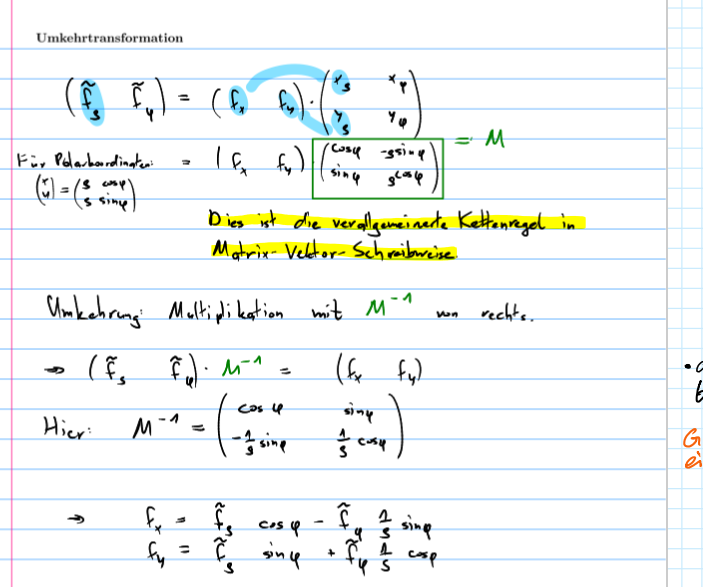 Umkehrtransformation
(f̃_ρ f̃_φ) = (f_x f_y) · (x_ρ x_φ
y_ρ y_φ)
Für Polarkoordinaten: = (f_x f_y) (cosφ -ρsinφ
sinφ ρcosφ) = M
(x
y) = (ρ cosφ
ρ sinφ)
Dies ist die verallgemeinerte Kettenregel in
Matrix-Vektor-Schreibweise.
Umkehrung: Multiplikation mit M⁻¹ von rechts.
⇒ (f̃_ρ f̃_φ) · M⁻¹ = (f_x f_y)
Hier: M⁻¹ = (cos φ sinφ
-1/ρ sinφ 1/ρ cosφ)
⇒ f_x = f̃_ρ cos φ - f̃_φ 1/ρ sinφ
f_y = f̃_ρ sin φ + f̃_φ 1/ρ cosφ